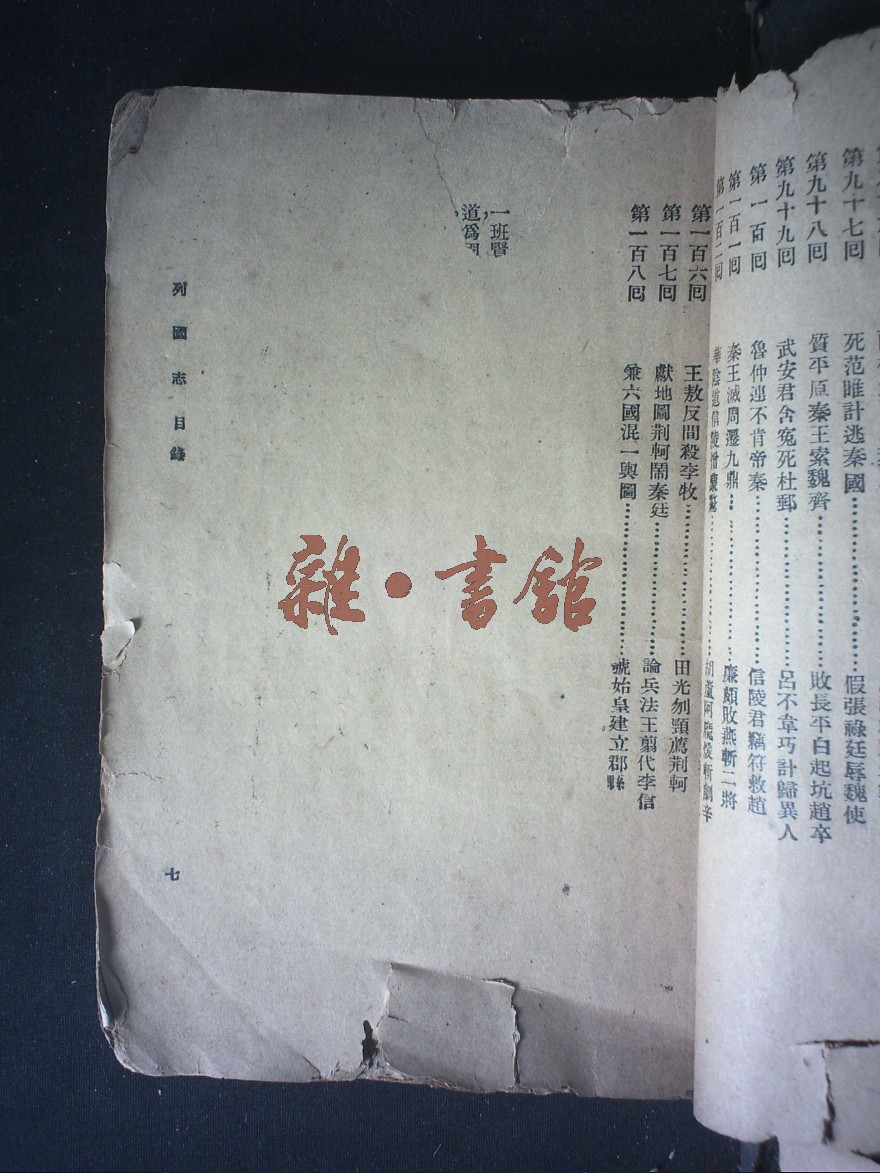 第九十七回 死范雎計逃秦國……假張祿廷辱魏使
第九十八回 質平原秦王索魏齊……敗長平白起坑趙卒
第九十九回 武安君含冤死杜郵……呂不韋巧計歸異人
第一百回 魯仲連不肯帝秦……信陵君竊符救趙
第一百一回 秦王滅周遷九鼎……廉頗敗燕斬二將
第一百二回 華陰道信陵
第一百六回 王敖反間殺李牧……田光刎頸薦荊軻
第一百七回 獻地圖荊軻鬧秦廷……論兵法王翦代李信
第一百八回 兼六國混一輿圖……號始皇建立郡縣
一班
道爲
列國志目錄
七
雜·書館